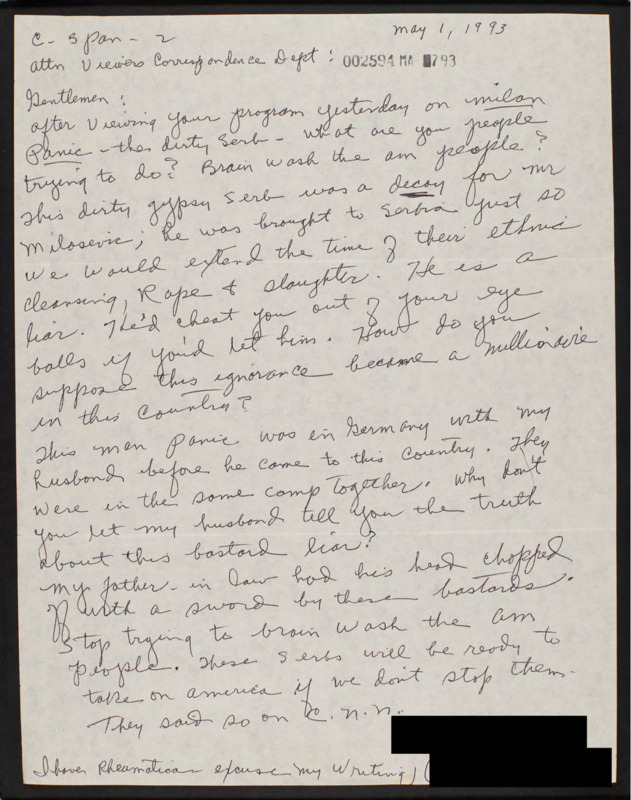 C-Span-2
May 1, 1993
Attn Viewers Correspondence Dept:
002594 MA 793
Gentlemen:
After Viewing your program yesterday on Milan
Panic - this dirty Serb - what are you people
trying to do? Brain wash the am people?
This dirty gypsy Serb was a decoy for Mr
Milosevic; he was brought to Serbia just so
we would extend the time of their ethnic
cleansing, Rape & slaughter. He is a
liar. He'd cheat you out of your eye
balls if you'd let him. How do you
suppose this ignorance became a millionaire
in this country?
This man Panic was in Germany with my
husband before he came to this country. They
were in the same camp together. Why don't
you let my husband tell you the truth
about this bastard liar?
My father-in law had his head chopped
off with a sword by these bastards.
Stop trying to brain wash the am
people. These Serbs will be ready to
take on america if we don't stop them.
They said so on C.N.N.
I have Rheumatism excuse my Writing)